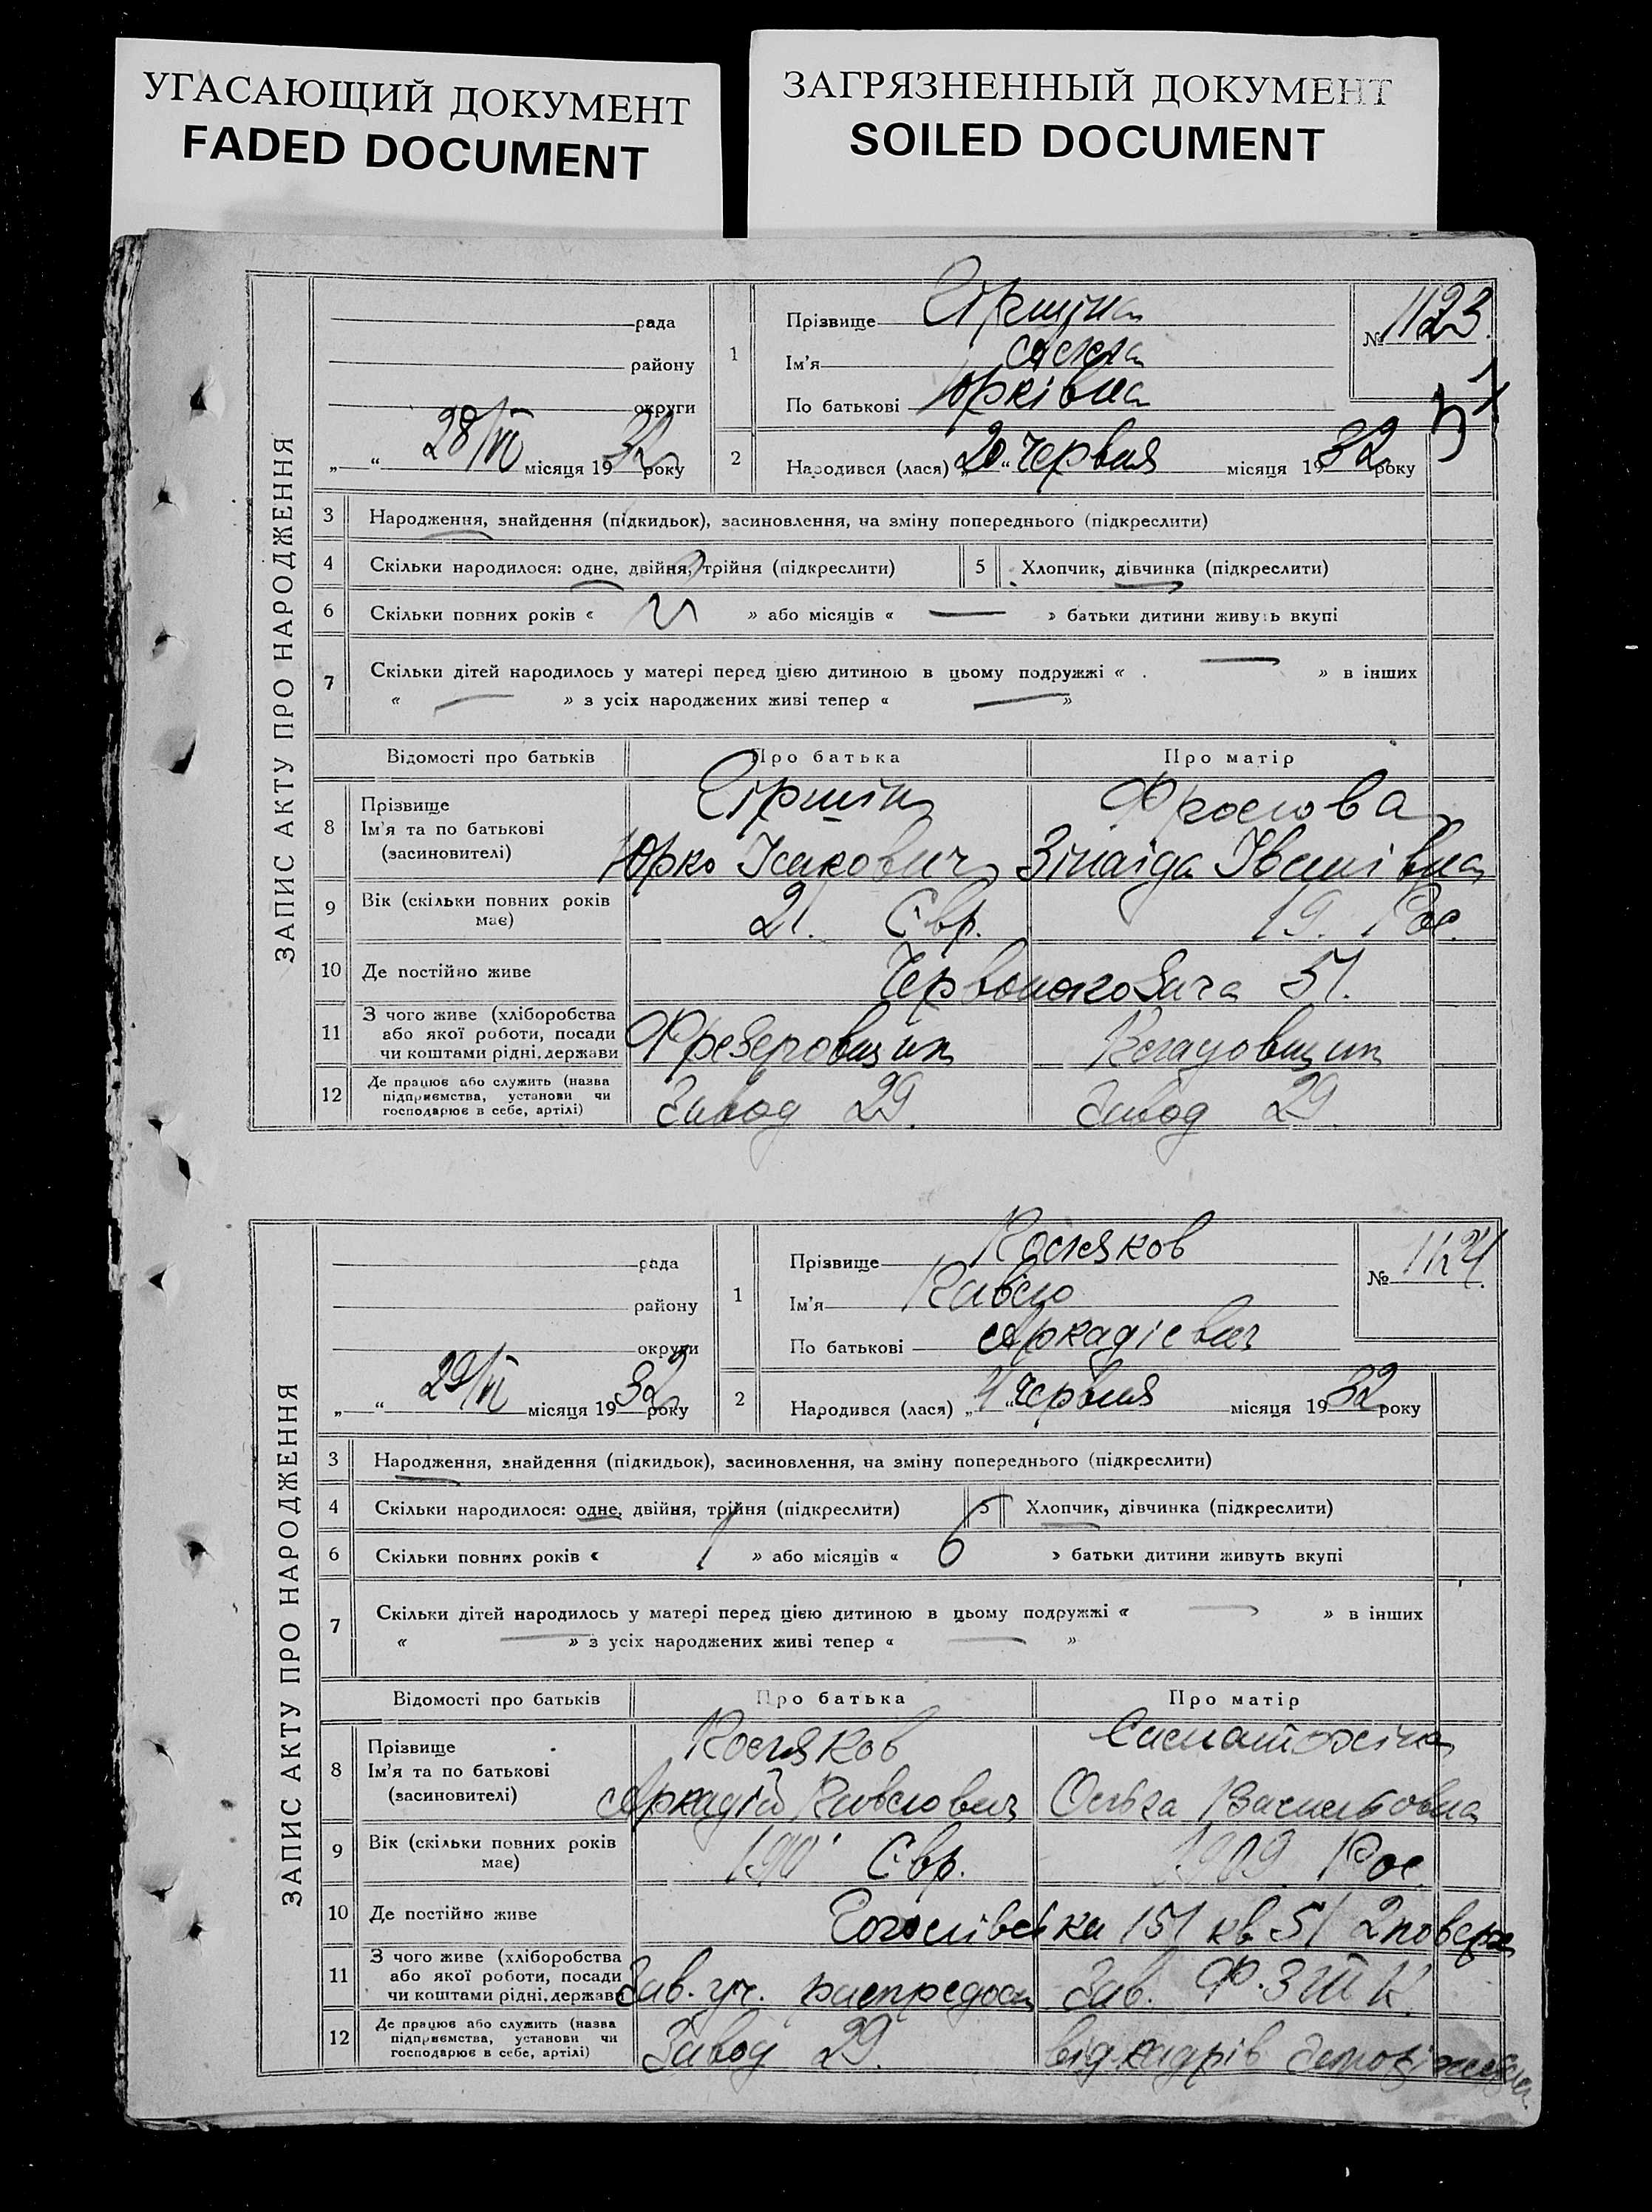 УГАСАЮЩИЙ ДОКУМЕНТ
FADED DOCUMENT
ЗАГРЯЗНЕННЫЙ ДОКУМЕНТ
SOILED DOCUMENT
ЗАПИС АКТУ ПРО НАРОДЖЕННЯ
рада
району
округи
„ “ 28/VI місяця 1932 року
1
Прізвище Гіршіна
Ім'я
По батькові Юрківна
№ 1123.
2
Народився (лася) „20“ червня місяця 1932 року
3 Народження, знайдення (підкидьок), засиновлення, на зміну попереднього (підкреслити)
4 Скільки народилося: одне, двійня, трійня (підкреслити)
5 Хлопчик, дівчинка (підкреслити)
6 Скільки повних років « » або місяців « — » батьки дитини живуть вкупі
7 Скільки дітей народилось у матері перед цією дитиною в цьому подружжі « — » в інших
« — » з усіх народжених живі тепер « — »
Відомості про батьків Про батька Про матір
8 Прізвище
Ім'я та по батькові
(засиновителі)
Гіршін
Юрко Ісакович
Фролова
Зінаіда Іванівна
9 Вік (скільки повних років
має)
21. Євр.
19. Рос.
10 Де постійно живе
51.
11 З чого живе (хліборобства
або якої роботи, посади
чи коштами рідні, держави
Фрезеровщик
12 Де працює або служить (назва
підприємства, установи чи
господарює в себе, артілі)
Завод 29.
Завод 29
ЗАПИС АКТУ ПРО НАРОДЖЕННЯ
рада
району
округи
„ “ 29/VI місяця 1932 року
1
Прізвище Косяков
Ім'я
По батькові Аркадієвич
№ 1124.
2
Народився (лася) „4“ червня місяця 1932 року
3 Народження, знайдення (підкидьок), засиновлення, на зміну попереднього (підкреслити)
4 Скільки народилося: одне, двійня, трійня (підкреслити)
5 Хлопчик, дівчинка (підкреслити)
6 Скільки повних років « 1 » або місяців « 6 » батьки дитини живуть вкупі
7 Скільки дітей народилось у матері перед цією дитиною в цьому подружжі « — » в інших
« — » з усіх народжених живі тепер « — »
Відомості про батьків Про батька Про матір
8 Прізвище
Ім'я та по батькові
(засиновителі)
Косяков
Аркадій
Ольга Васильовна
9 Вік (скільки повних років
має)
Євр.
1909 Рос.
10 Де постійно живе
151 кв 51 2 поверх
11 З чого живе (хліборобства
або якої роботи, посади
чи коштами рідні, держави
Зав. уч.
Зав.
12 Де працює або служить (назва
підприємства, установи чи
господарює в себе, артілі)
Завод 29.
від кадрів